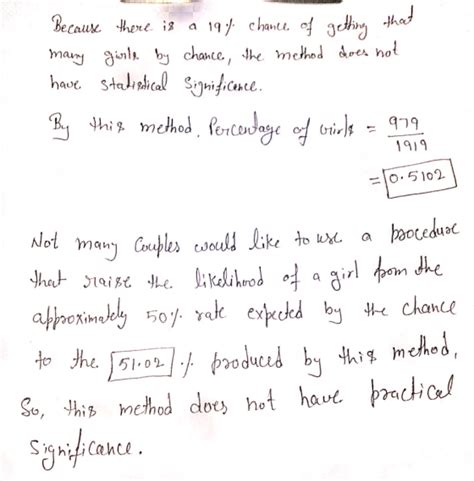 Because there is a 19% chance of getting that
many girls by chance, the method does not
have statistical significance.
By this method, Percentage of Girls = 979
1919
= 0.5102
Not many Couples would like to use a procedure
that raise the likelihood of a girl from the
approximately 50% rate expected by the chance
to the 51.02 % produced by this method,
So, this method does not have practical
significance.